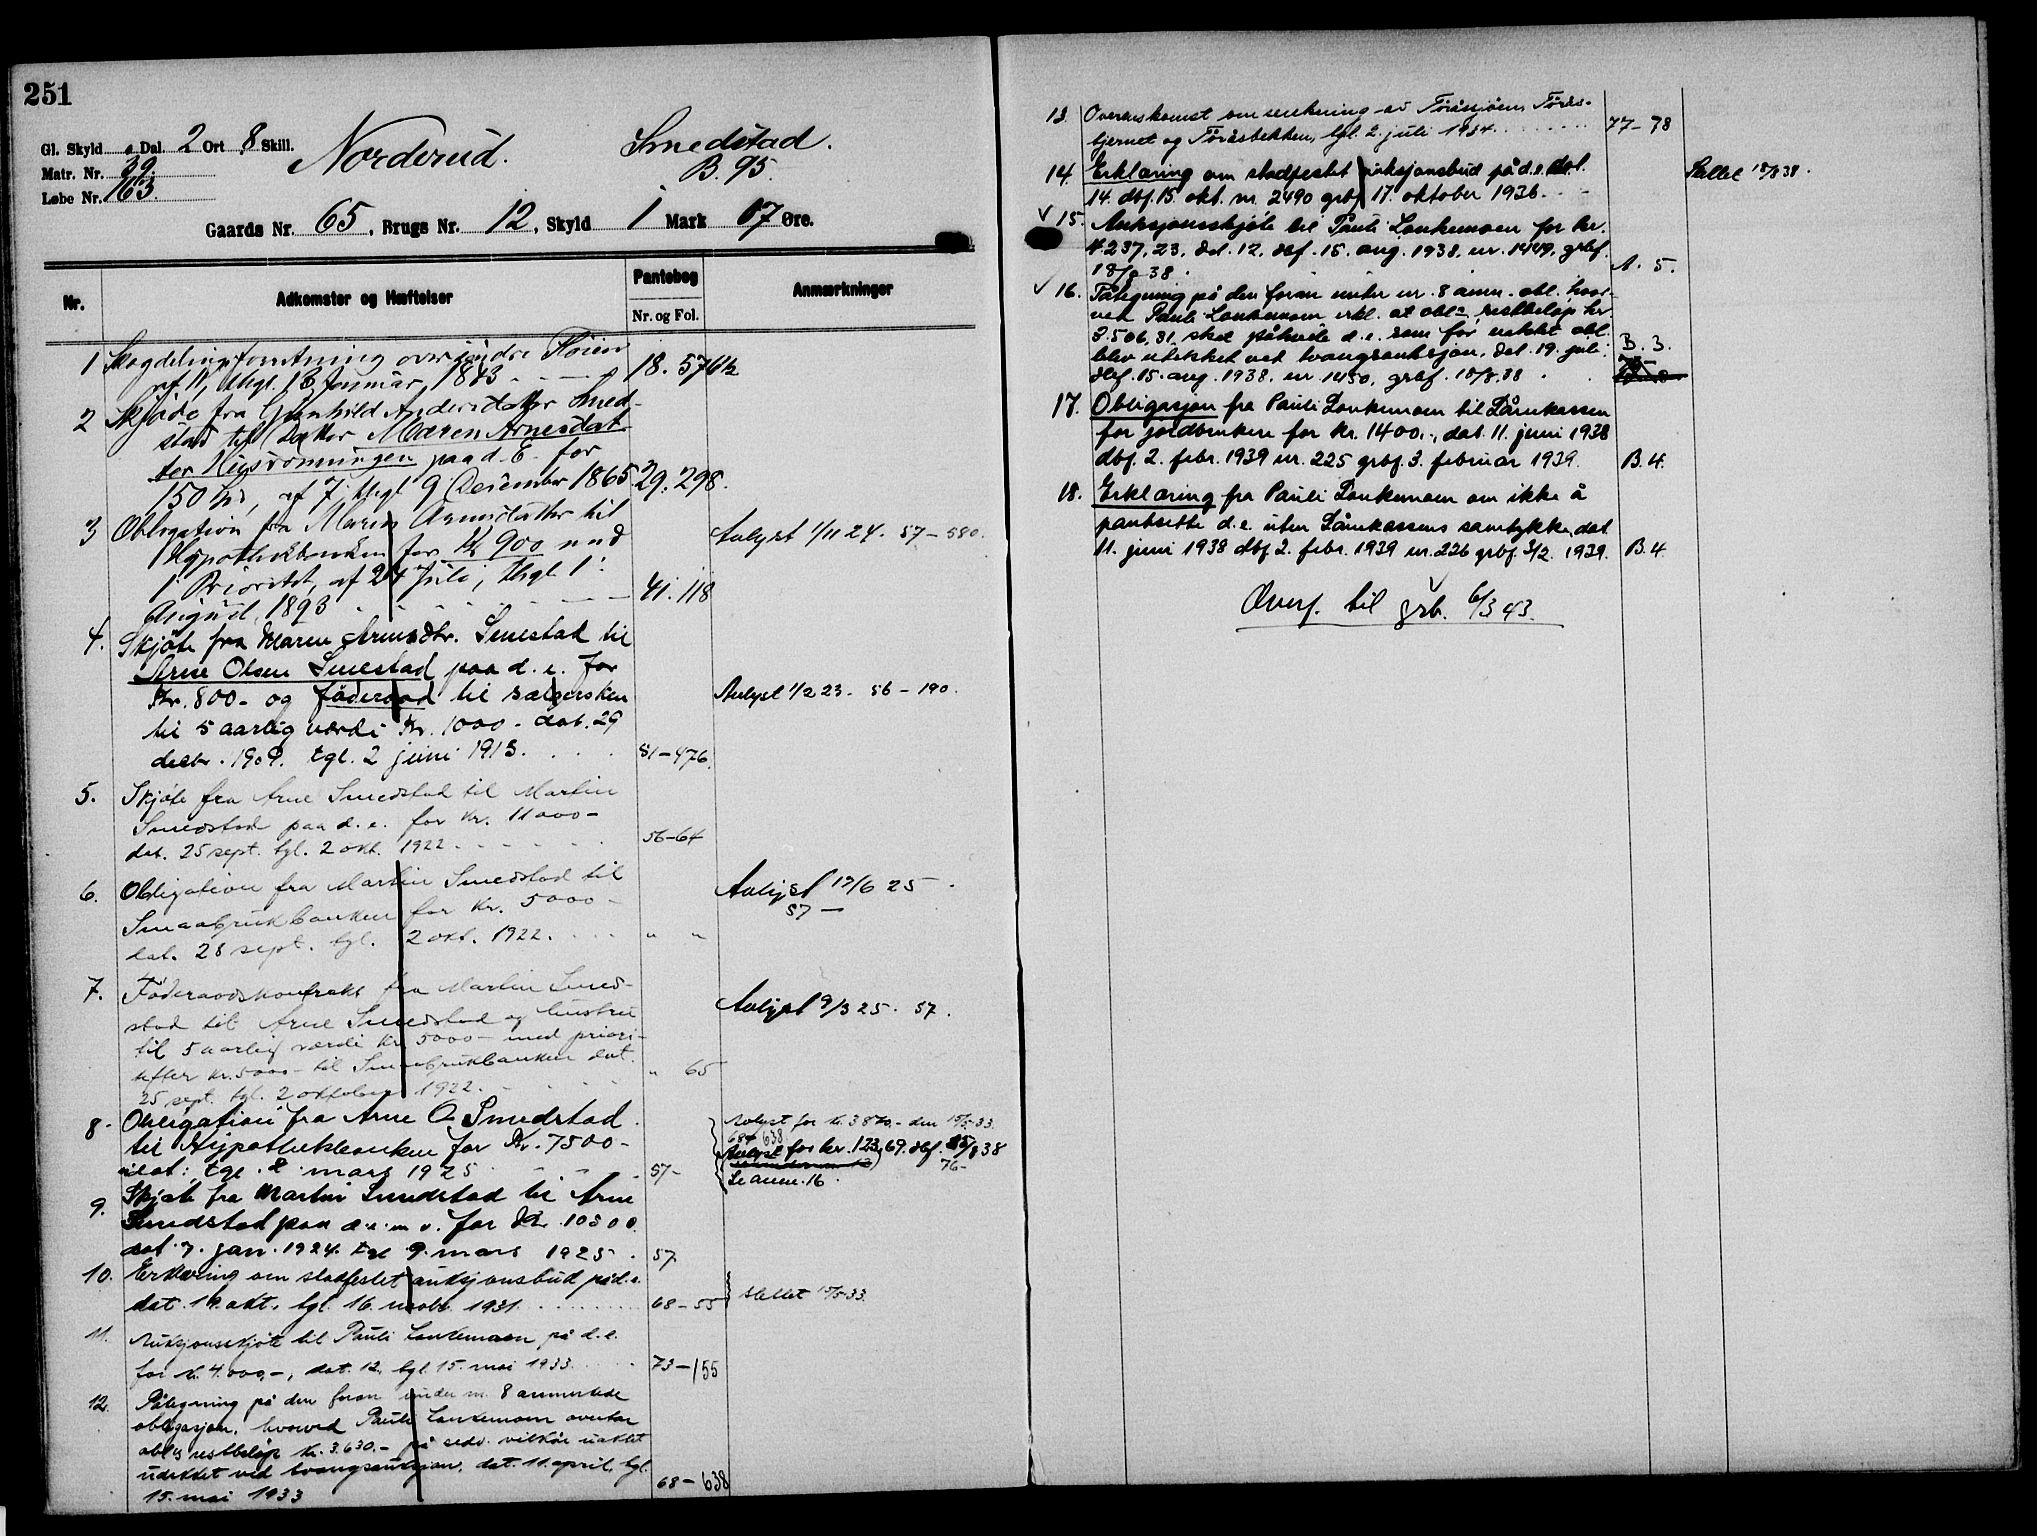 251
Gl. Skyld . Dal. 2 Ort 8 Skill.
Matr. Nr. 39.
Løbe Nr. 163.
Norderud.
Smedstad.
B. 95.
Gaards Nr. 65, Brugs Nr. 12, Skyld 1 Mark 07 Øre.
Nr.
Adkomster og Hæftelser
Pantebog
Nr. og Fol.
Anmærkninger
1 Skogdelingsforretning over søndre Kloien
af 11, thgl. 13 Januar 1883. 18. 576½
2 Skjøde fra Gunhild Andersdatter Smed-
stad til Datter Maren Arnesdat-
ter Nysrømningen paa d. E. for
150 Spd, af 7, thgl 9 December 1865 29. 298.
3 Obligation fra Maren Arnesdatter til
Hypothekbanken for Kr 900 med
1 Prioritet, af 24 Juli, thgl. 1
August 1893 41. 118
Avlyst 1/11 24. 57-580.
4. Skjøte fra Maren Arnesdtr. Smestad til
Arne Olsen Smestad paa d. e. for
Kr. 800- og föderaad til sælgersken
til 5 aarlig værdi Kr. 1000- dat. 29
decbr. 1909. tgl. 2 juni 1913. 51-476.
Avlyst 1/2 23. 56-190.
5. Skjøte fra Arne Smedstad til Martin
Smedstad paa d. e. for Kr. 11000-
dat. 25 sept. tgl. 2 okt. 1922. 56-64
6. Obligation fra Martin Smedstad til
Smaabrukbanken for Kr. 5000-
dat. 28 sept. tgl. 2 okt. 1922. " "
Avlyst 17/6 25
57 —
7. Föderaadskontrakt fra Martin Smed-
stad til Arne Smedstad og hustru
til 5 aarlig værdi Kr. 5000- med priori-
efter Kr. 5000- til Smaabrukbanken dat.
25 sept. tgl. 2 oktober 1922. " 65
Avlyst 9/3 25. 57.
8. Obligation fra Arne O. Smedstad
til Hypothekbanken for Kr. 7500-
udat; tgl. 2 mars 1925 57-
Avlyst for kr. 3870,- den 15/5-33.
684 638
Avlyst for kr. 123,69. dbf. 15/8 38
76-
Se anm. 16.
9. Skjøte fra Martin Smedstad til Arne
Smedstad paa d. e. m. v. for Kr. 10500.
dat. 7. jan. 1924. tgl 9. mars 1925. 57.
10. Erklæring om stadfestet auksjonsbud på d. e.
dat. 19. okt. tgl. 16. novbr. 1931. 68-55
slettet 15/5-33.
11. Auksjonsskjøte til Pauli Lonkemoen på d. e.
for kr. 4.000,-, dat. 12. tgl. 15. mai 1933. 73-155
12. Påtegning på den foran under nr. 8 anmerkede
obligasjon, hvorved Pauli Lonkemoen overtar
obl.s restbeløp kr. 3.630.- på sedv. vilkår uaktet
utslettet ved tvangsauksjon, dat. 11. april, tgl.
15. mai 1933 68-638
13. Overenskomst om senkning av Töråssjöen, Törås-
tjernet og Töråsbekken, tgl. 2. juli 1934. 77-78
14. Erklæring om stadfestet auksjonsbud på d. e. dat.
14. dbf. 15. okt. nr. 2490 grbf 17. oktober 1936.
Slettet 18/8 38.
15. Auksjonsskjöte til Pauli Lonkemoen for kr.
4237,23, dat. 12. dbf. 15. aug. 1938, nr. 1449, grbf.
18/8 38. A. 5.
16. Påtegning på den foran under nr. 8 anm. obl. hvor-
ved Pauli Lonkemoen erkl. at obl.s restbeløp kr.
3.506,31, skal påhvile d. e. som för uaktet obl.
blev utslettet ved tvangsauksjon, dat. 19. juli,
dbf. 15. aug. 1938. nr. 1450, grbf. 18/8.38 B. 3.
17. Obligasjon fra Pauli Lonkemoen til Lånekassen
for jordbrukere for kr. 1400.-, dat. 11. juni 1938
dbf. 2. febr. 1939 nr. 225 grbf. 3. februar 1939. B. 4.
18. Erklæring fra Pauli Lonkemoen om ikke å
pantsette d. e. uten Lånekassens samtykke, dat.
11. juni 1938 dbf. 2. febr. 1939 nr. 226 grbf. 3/2. 1939. B. 4.
Overf. til grb. 6/3 43.